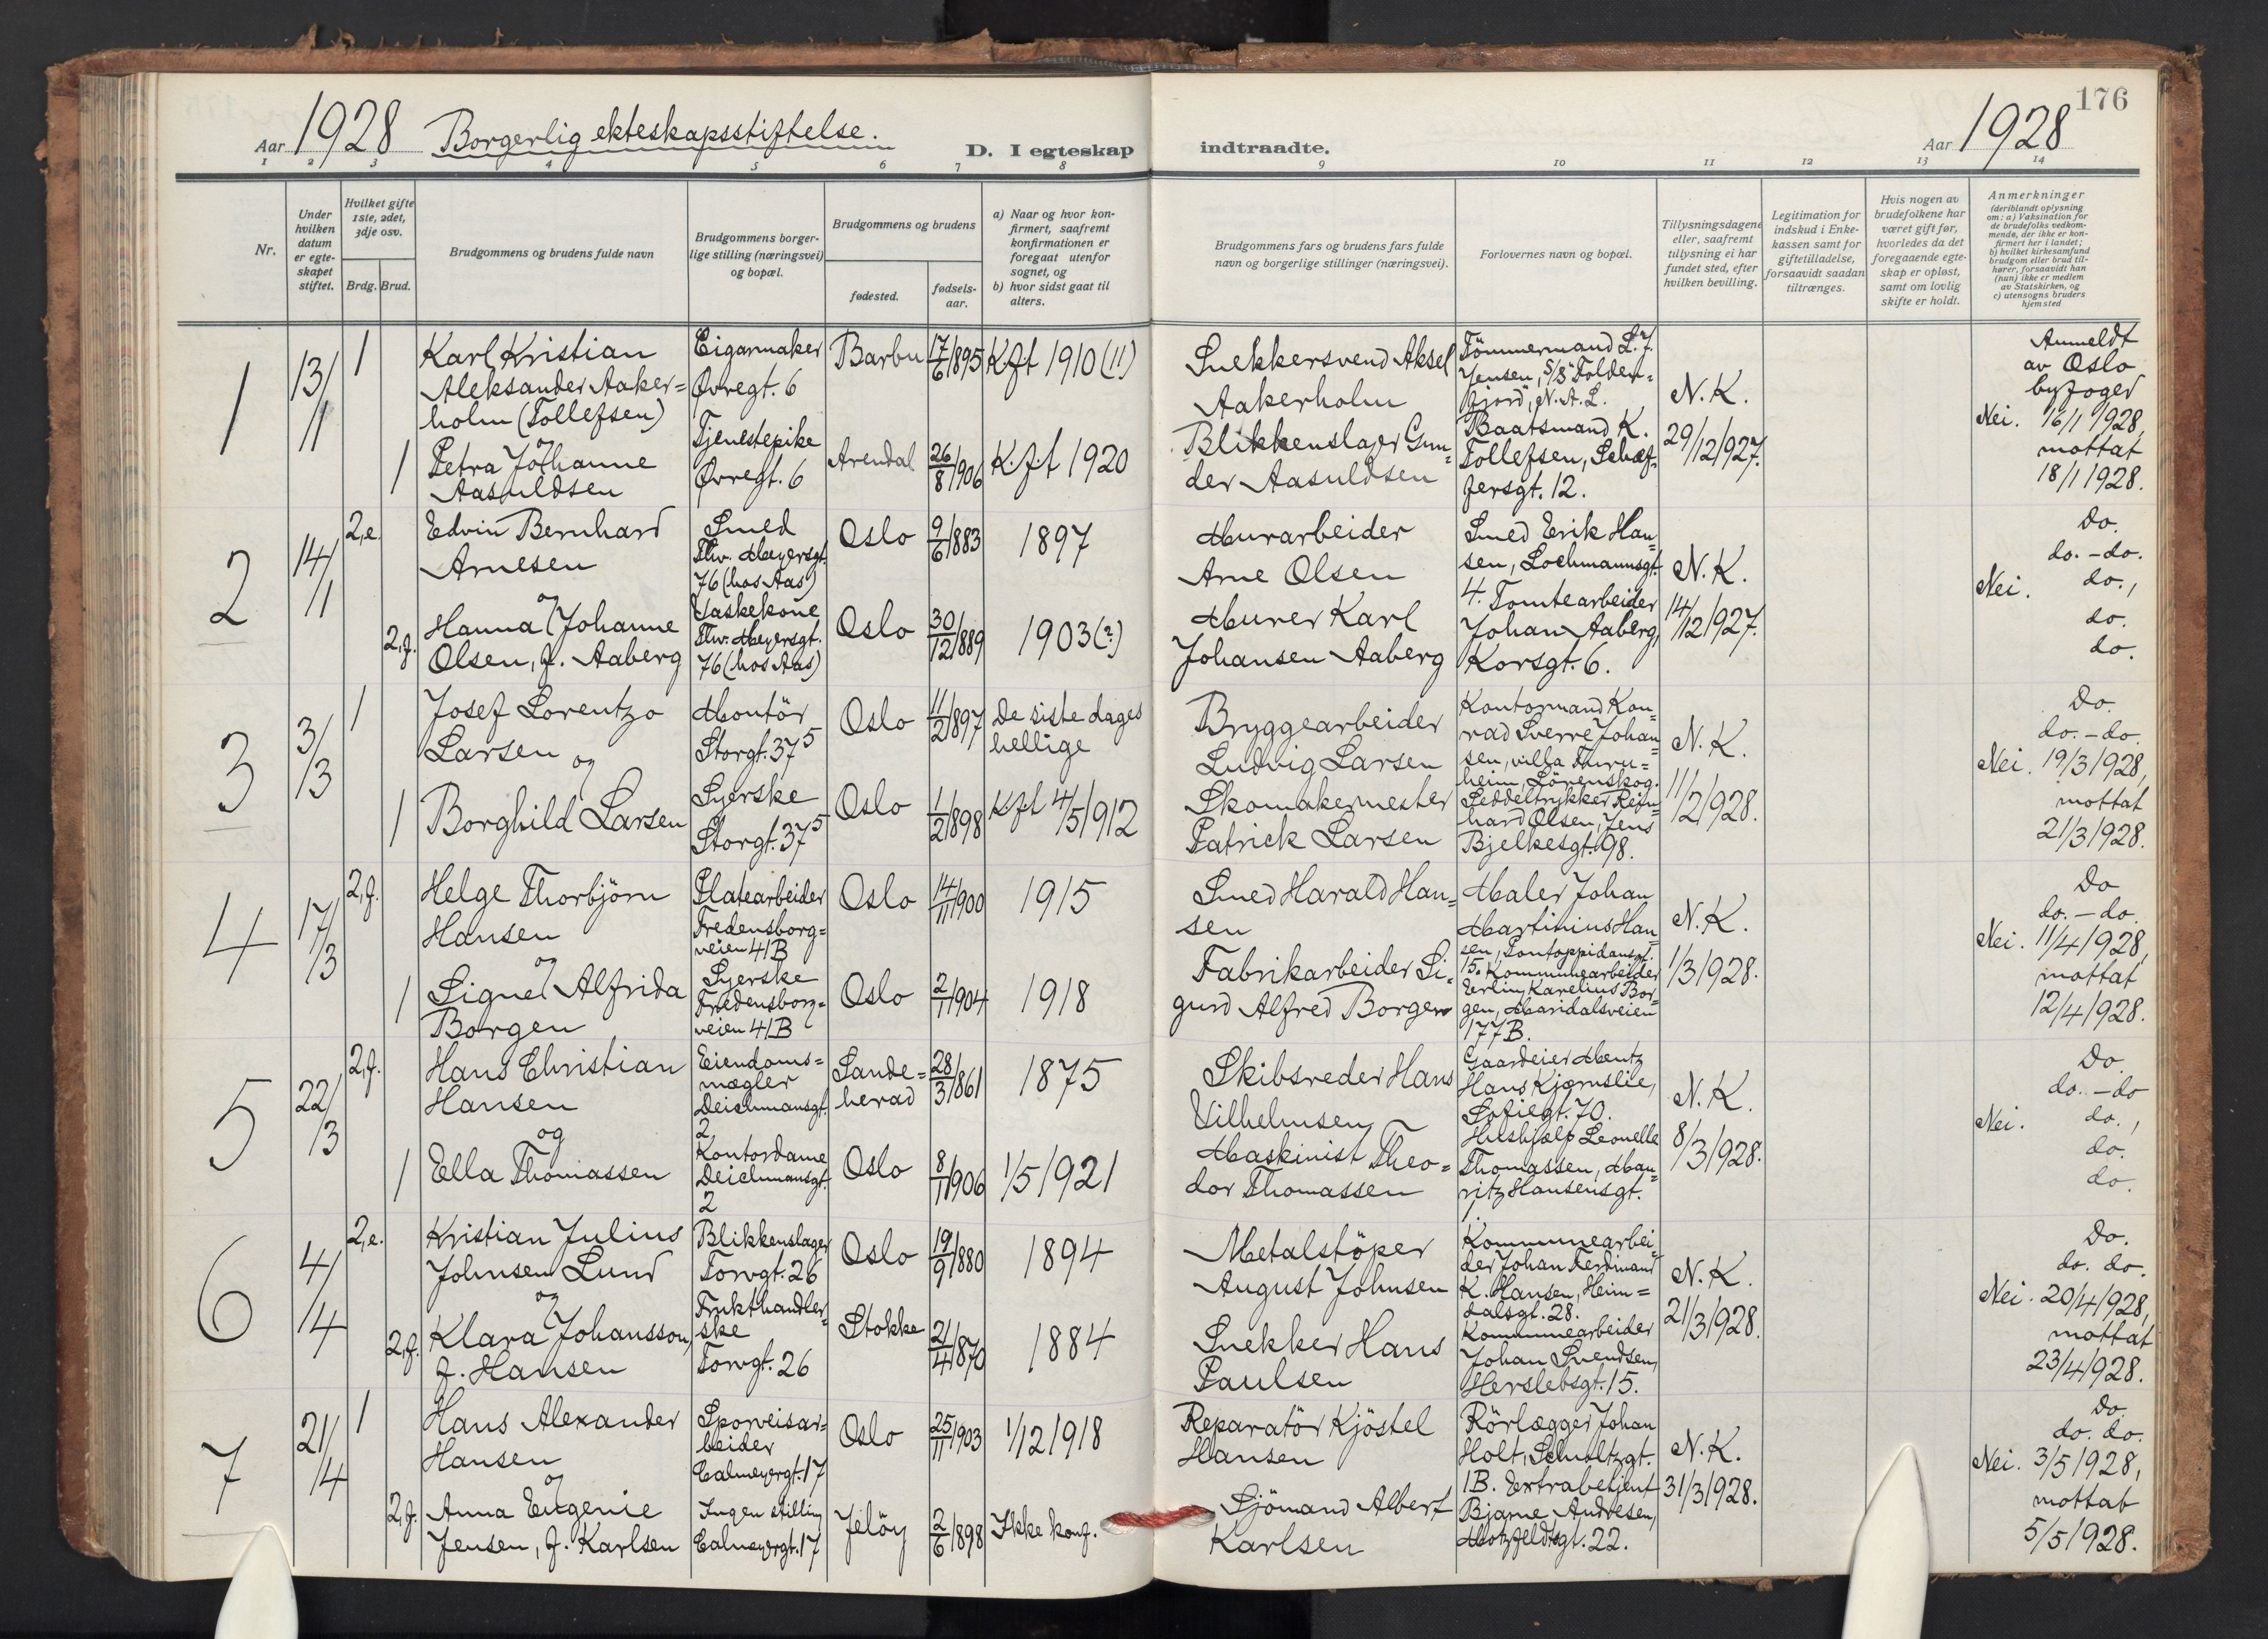 Aar 1928 Borgerlig ekteskapsstiftelse.
D. I egteskap indtraadte.
Aar 1928
176
1 2 3 4 5 6 7 8 9 10 11 12 13 14
Nr.
Under
hvilken
datum
er egte-
skapet
stiftet.
Hvilket gifte
1ste, 2det,
3dje osv.
Brdg. Brud.
Brudgommens og brudens fulde navn
Brudgommens borger-
lige stilling (næringsvei)
og bopæl.
Brudgommens og brudens
fødested.
fødsels-
aar.
a) Naar og hvor kon-
firmert, saafremt
konfirmationen er
foregaat utenfor
sognet, og
b) hvor sidst gaat til
alters.
Brudgommens fars og brudens fars fulde
navn og borgerlige stillinger (næringsvei).
Forlovernes navn og bopæl.
Tillysningsdagene
eller, saafremt
tillysning ei har
fundet sted, efter
hvilken bevilling.
Legitimation for
indskud i Enke-
kassen samt for
giftetilladelse,
forsaavidt saadan
tiltrænges.
Hvis nogen av
brudefolkene har
været gift før,
hvorledes da det
foregaaende egte-
skap er opløst,
samt om lovlig
skifte er holdt.
Anmerkninger
(deriblandt oplysning
om: a) Vaksination for
de brudefolks vedkom-
mende, der ikke er kon-
firmert her i landet;
b) hvilket kirkesamfund
brudgom eller brud til-
hører, forsaavidt han
(hun) ikke er medlem
av Statskirken, og
c) utensogns bruders
hjemsted
1
13/11
1
Karl Kristian
Aleksander Aaker=
holm (Tollefsen)
og
Cigarmaker
Øvregt. 6
Barbu
17/6 1895
K.f.t 1910 (11)
Snekkersvend Aksel
Aakerholm
Tömmermand L. J.
Jensen, S/S "Folden=
fjord", N. A. L.
N. K.
29/12 1927.
1
Petra Johanne
Aasuldsen
Tjenestepike
Øvregt. 6
Arendal
26/8 1906
K.f.t 1920
Blikkenslager Gun=
der Aasuldsen
Baatsmand K.
Tollefsen, Schæf=
fersgt. 12.
Nei.
Anmeldt
av Oslo
byfoged
16/1 1928,
mottat
18/1 1928.
2
14/11
2, e.
Edvin Bernhard
Arnesen
og
Smed
Thv. Meyersgt.
76 (hos Aas)
Oslo
9/6 1883
1897
Murarbeider
Arne Olsen
Smed Erik Han=
sen, Lochmannsgt.
4.
N. K.
14/12 1927.
2, f.
Hanna Johanne
Olsen, f. Aaberg
Vaskekone
Thv. Meyersgt.
76 (hos Aas)
Oslo
30/12 1889
1903 (?)
Murer Karl
Johansen Aaberg
Tomtearbeider
Johan Aaberg,
Korsgt. 6.
Nei.
Do.
do. - do.
do.,
do.
do.
3
3/3
1
Josef Lorentzo
Larsen
og
Montör
Storgt. 37⁵
Oslo
11/2 1897
De siste dages
hellige
Bryggearbeider
Ludvig Larsen
Kontormand Kon=
rad Sverre Johan=
sen, villa Furu=
heim, Lörenskog.
N. K.
11/2 1928.
1
Borghild Larsen
Syerske
Storgt. 37⁵
Oslo
1/2 1898
K.f.t 4/5 1912
Skomakermester
Patrick Larsen
Seddeltrykker Rein=
hard Olsen, Jens
Bjelkesgt. 98.
Nei.
Do.
do. - do.
19/3 1928,
mottat
21/3 1928.
4
17/3
2, f.
Helge Thorbjörn
Hansen
og
Platearbeider
Fredensborg=
veien 41B
Oslo
14/11 1900
1915
Smed Harald Han=
sen
Maler Johan
Martinius Han=
sen, Pontoppidansgt.
15.
N. K.
1/3 1928.
1
Signe Alfrida
Borgen
Syerske
Fredensborg=
veien 41B
Oslo
2/11 1904
1918
Fabrikarbeider Si=
gurd Alfred Borgen
Kommunearbeider
Erling Karelius Bor=
gen, Maridalsveien
177B.
Nei.
Do
do. - do.
11/4 1928,
mottat
12/4 1928.
5
22/3
2, f.
Hans Christian
Hansen
og
Eiendoms=
mægler
Deichmansgt.
2
Sande=
herad
28/3 1861
1875
Skibsreder Hans
Vilhelmsen
Gaardeier Mentz
Hans Kjærnslie,
Sofiegt. 70.
N. K.
8/3 1928.
1
Ella Thomassen
Kontordame
Deichmansgt.
2
Oslo
8/11 1906
1/5 1921
Maskinist Theo=
dor Thomassen
Hushjælp Leonelle
Thomassen, Mau=
ritz Hansensgt.
1.
Nei.
Do.
do. - do
do.,
do.
do.
6
4/4
2, e.
Kristian Julius
Johnsen Lund
og
Blikkenslager
Torvgt. 26
Oslo
19/9 1880
1894
Metalstöper
August Johnsen
Kommunearbei=
der Johan Ferdinand
K. Hansen, Heim=
dalsgt. 28.
N. K.
21/3 1928.
2, f.
Klara Johansson,
f. Hansen
Frukthandler=
ske
Torvgt. 26
Stokke
21/4 1870
1884
Snekker Hans
Paulsen
Kommunearbeider
Johan Svendsen,
Herslebsgt. 15.
Nei.
Do.
do. do.
20/4 1928,
mottat
23/4 1928.
7
21/4
1
Hans Alexander
Hansen
og
Sporveisar=
beider
Calmeyergt. 17
Oslo
25/11 1903
1/12 1918
Reparatör Kjöstel
Hansen
Rörlægger Johan
Holt, Schultzgt.
1B.
N. K.
31/3 1928.
2, f.
Anna Eugenie
Jensen, f. Karlsen
Ingen stilling
Calmeyergt. 17
Jelöy
2/6 1898
Ikke konf.
Sjömand Albert
Karlsen
Extrabetjent
Bjarne Andresen,
Motzfeldtsgt. 22.
Nei.
Do
do. do.
3/5 1928,
mottat
5/5 1928.